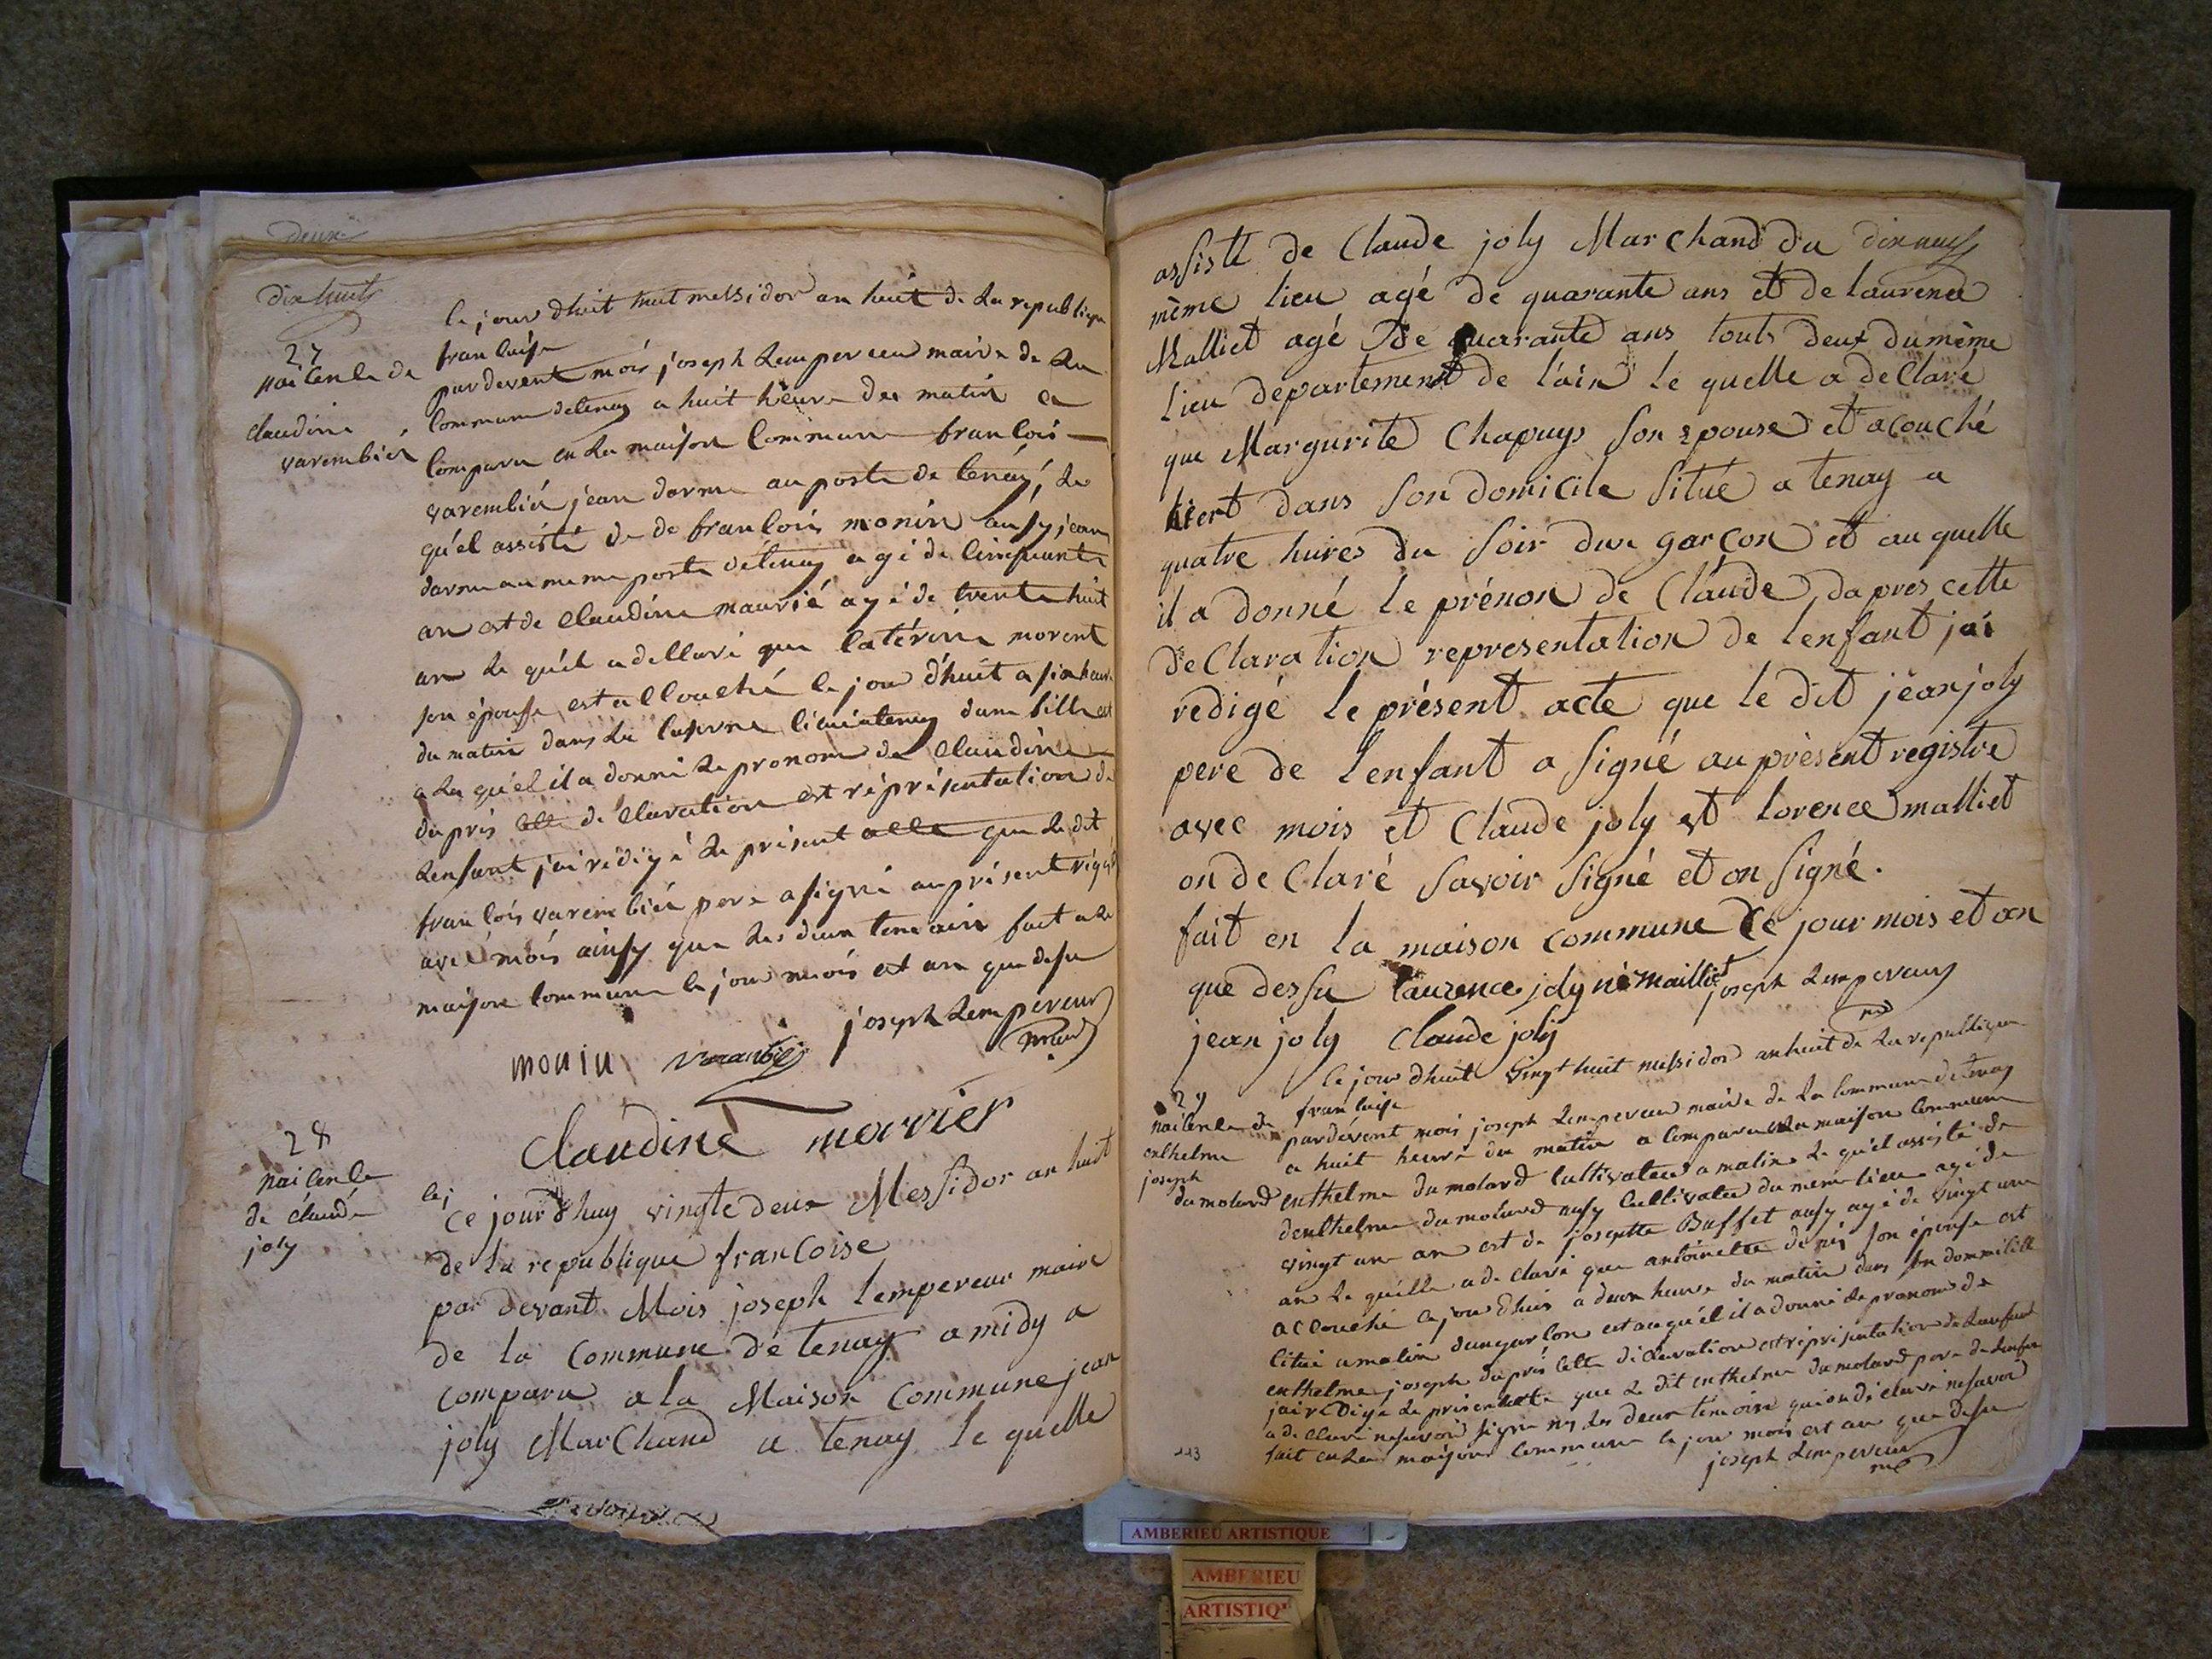 deux
dix huit
le jour dhuit huit messidor an huit de La republique
francaise
27
naicence de
claudine
varembiér
pardevent mois joseph Lempereur maire de La
commune detenay a huit heure deu matin a
comparu en La maison commune francois
varembiér jean darme au poste de tenay, Le
qu'el assisté de de francois monin ausy jean
darme au meme poste detenay agé de cinquante
an est de claudine maurié agé de trente huit
an Le qu'el a declaré que caterine morent
son épouse est allouché le jour d'huit a six heur
du matin dans La caserne cituéatenay dune fille est
a La qu'el il a donné Le pronom de claudine
daprés celle déclaration est répréséntation de
Lenfant jai rédigé Le présent acte que Le dit
francois varembiér pere a signé au présent régist
avec mois ainsy que Les deux temoin fait a La
maison commune le jour mois est an que desu
joseph Lempereur
monin varambier
Claudine morrier
28
naicence
de claude
joly
cej
ce jourdhuy vingte deux Messidor an huit
de la republique francoise
par devant Mois joseph lempereur maire
de la Commune de tenay a midy a
comparu a la Maison Commune jean
joly Marchand a tenay le quelle
assisté de Claude joly Marchand du dix neuf
même lieu agé de quarante ans et de laurence
Malliet agé de quarante ans touts deux dumême
lieu departement de l'ain le quelle a declaré
que Margurite Chapuys son epouse et acouché
hiert dans son domicile situé a tenay a
quatre hures du soir dun garçon et au quelle
il a donné le prénon de Claude, dapres cette
declaration representation de lenfant jai
redigé le présent acte que le dit jean joly
pere de lenfant a signé au présent registre
avec mois et Claude joly et lorence malliet
on declaré savoir signé et on signé.
fait en la maison commune le jour mois et an
que dessu laurence joly né maillet joseph Lempereur
jean joly Claude joly
le jour dhuit vingt huit messidor anhuit de La republique
francaise
29
naicence de
enthelme
joseph
dumolard
pardévent mois joseph Lempereur maire de La commune detenay
a huit heure du matin a comparu en La maison commune
enthelme dumolard cultivateur a malix Le qu'el assisté de
denthelme dumolard ausy cultivateur du meme lieu agé de
vingt un an est de josephte Buffet ausy agé de vingt un
an Le qu'elle a declaré que antoinette son épouse est
accouché le jour dhuis a deux heure du matin dans son dommicille
citué amalix dungarcon est auqu'el il a donné Le pronom de
enthelme joseph daprés cette déclaration est réprésentation de Lenfant
jai rédigé Le présent acte que Le dit enthelme dumolard pere de Lenfan
a declaré nesavoir signé ny Les deux témoins qui on déclaré nesavoir
fait en La maison commune le jour mois est an que desu
joseph Lempereur
AMBERIEU ARTISTIQUE
AMBERIEU
ARTISTIQ